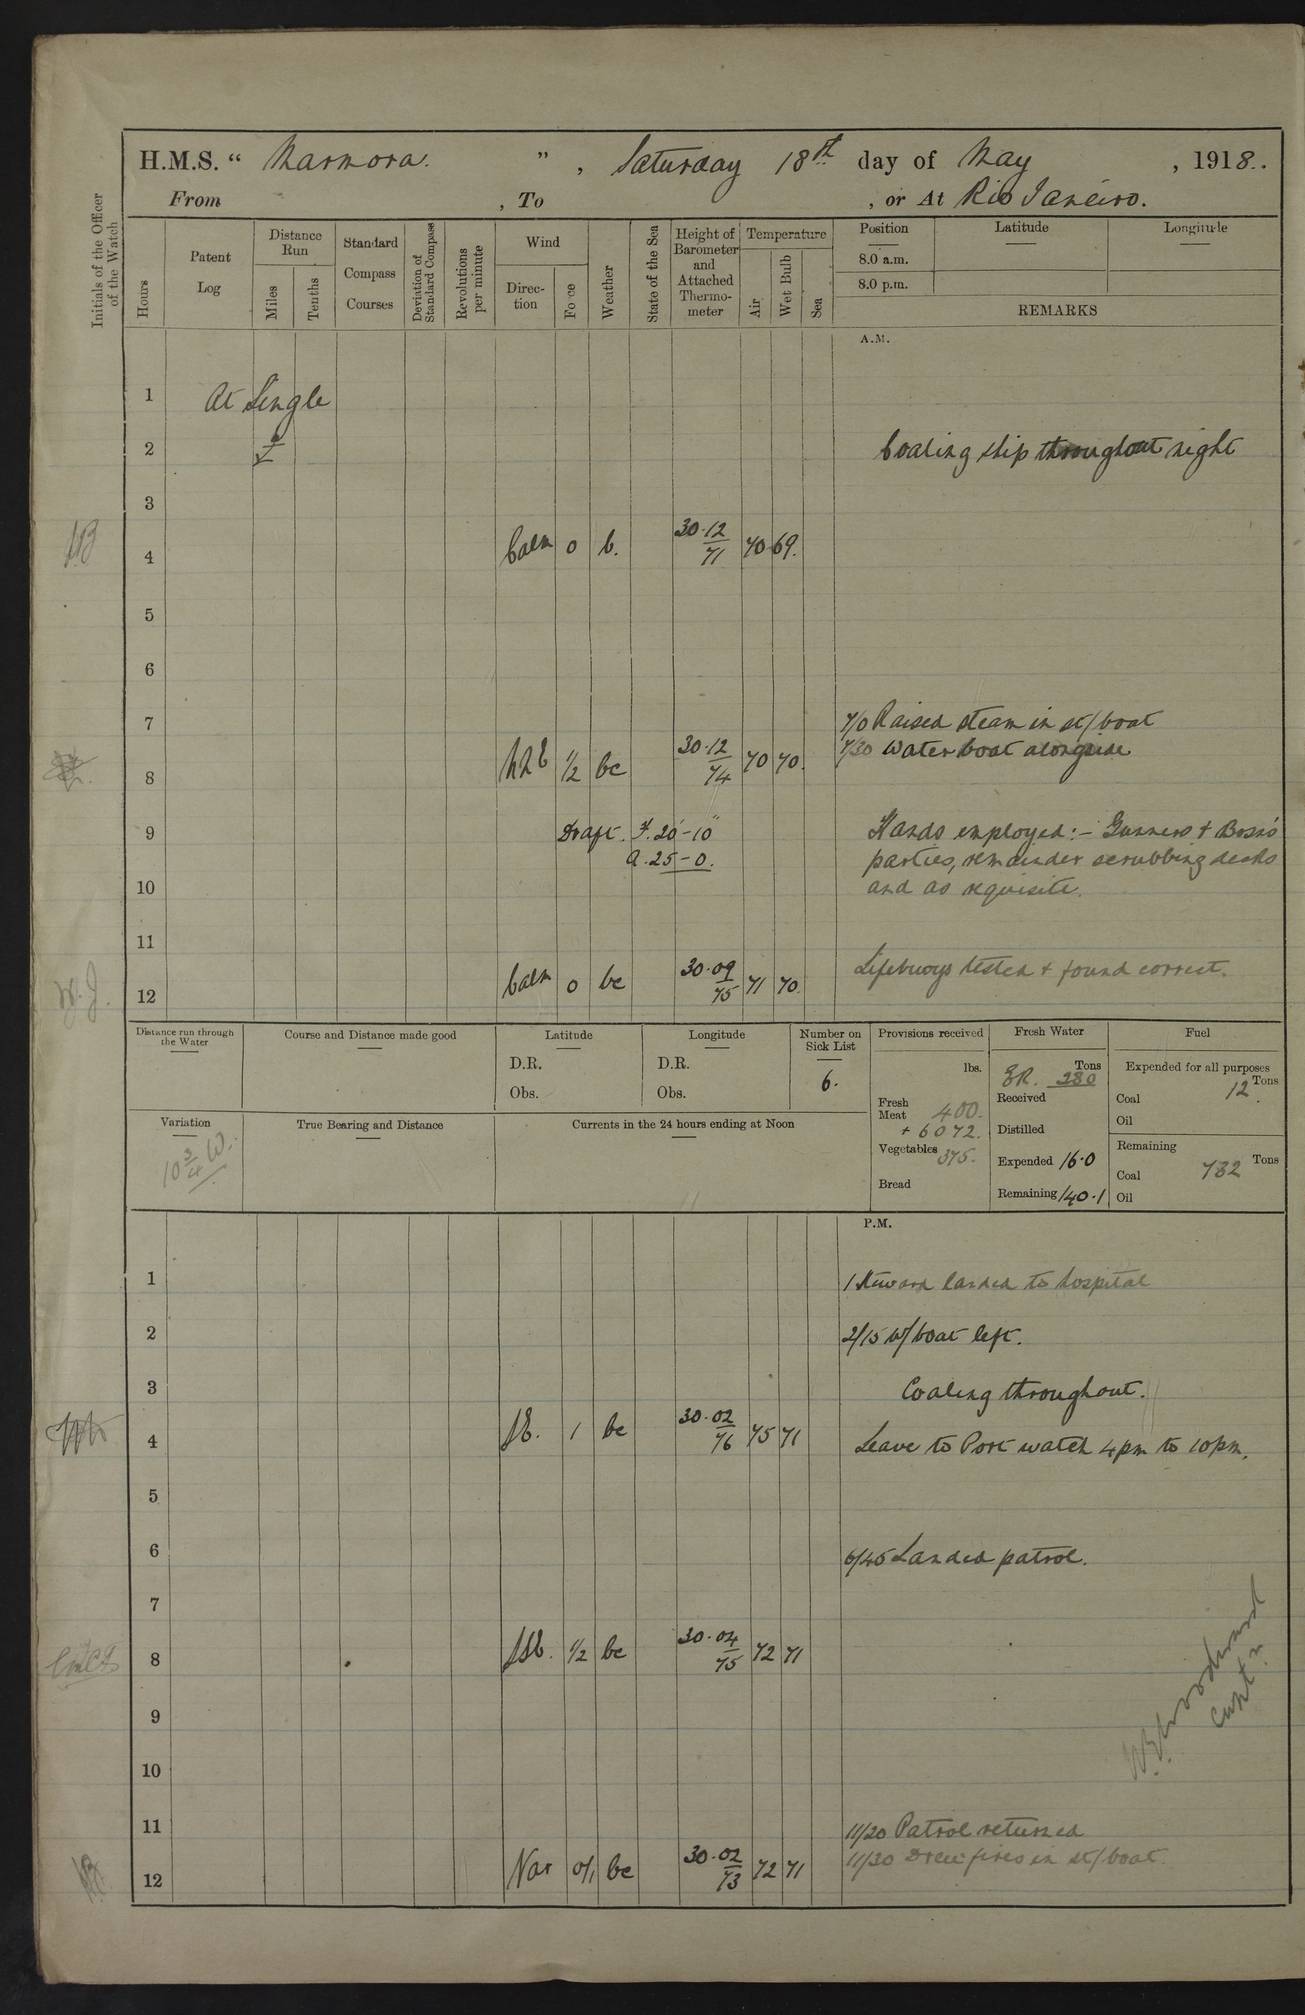 H.M.S. " Marmora. ", Saturday 18th day of May, 1918..
From , To , or At Rio Janeiro.
Initials of the Officer of the Watch
Hours
Patent Log
Distance Run
Miles
Tenths
Standard Compass Courses
Deviation of Standard Compass
Revolutions per minute
Wind
Direction
Force
Weather
State of the Sea
Height of Barometer and Attached Thermometer
Temperature
Air
Wet Bulb
Sea
Position
Latitude
Longitude
8.0 a.m.
8.0 p.m.
REMARKS
A.M.
1 At Single
2 Coaling ship throughout night
3
4 Calm 0 b. 30.12 71 70 69.
5
6
7 7/0 Raised steam in st/boat
7/30 Water boat alongside
8 NNE 1/2 bc 30.12 74 70 70.
9 Draft. F. 20'-10" Hands employed:- Gunners + Bosn's
A. 25-0. parties, remainder scrubbing decks
10 and as requisite.
11 Lifebuoys tested + found correct.
12 Calm 0 bc 30.09 75 71 70.
W.J.
Distance run through the Water
Course and Distance made good
Latitude
D.R.
Obs.
Longitude
D.R.
Obs.
Number on Sick List
6.
Provisions received
lbs.
Fresh Meat 400.
+ 6072.
Vegetables 375.
Bread
Fresh Water
Tons
280
Received
Distilled
Expended 16.0
Remaining 140.1
Fuel
Expended for all purposes
Tons
Coal 12.
Oil
Remaining
Tons
Coal 732
Oil
Variation
10 3/4 W.
True Bearing and Distance
Currents in the 24 hours ending at Noon
P.M.
1 1 Steward landed to hospital
2 2/15 W/boat left.
3 Coaling throughout.
4 SE. 1 bc 30.02 76 75 71 Leave to Port watch 4pm to 10pm.
5
6 6/45 Landed patrol.
7
8 SSE. 1/2 bc 30.04 75 72 71
9
10
11 11/20 Patrol returned
11/30 Drew fires in st/boat.
12 Var 0/1 bc 30.02 73 72 71
Woodward